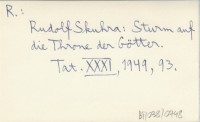 R.:
Rudolf Skuhra: Sturm auf
die Throne der Götter.
Tat. XXXI, 1949, 93.